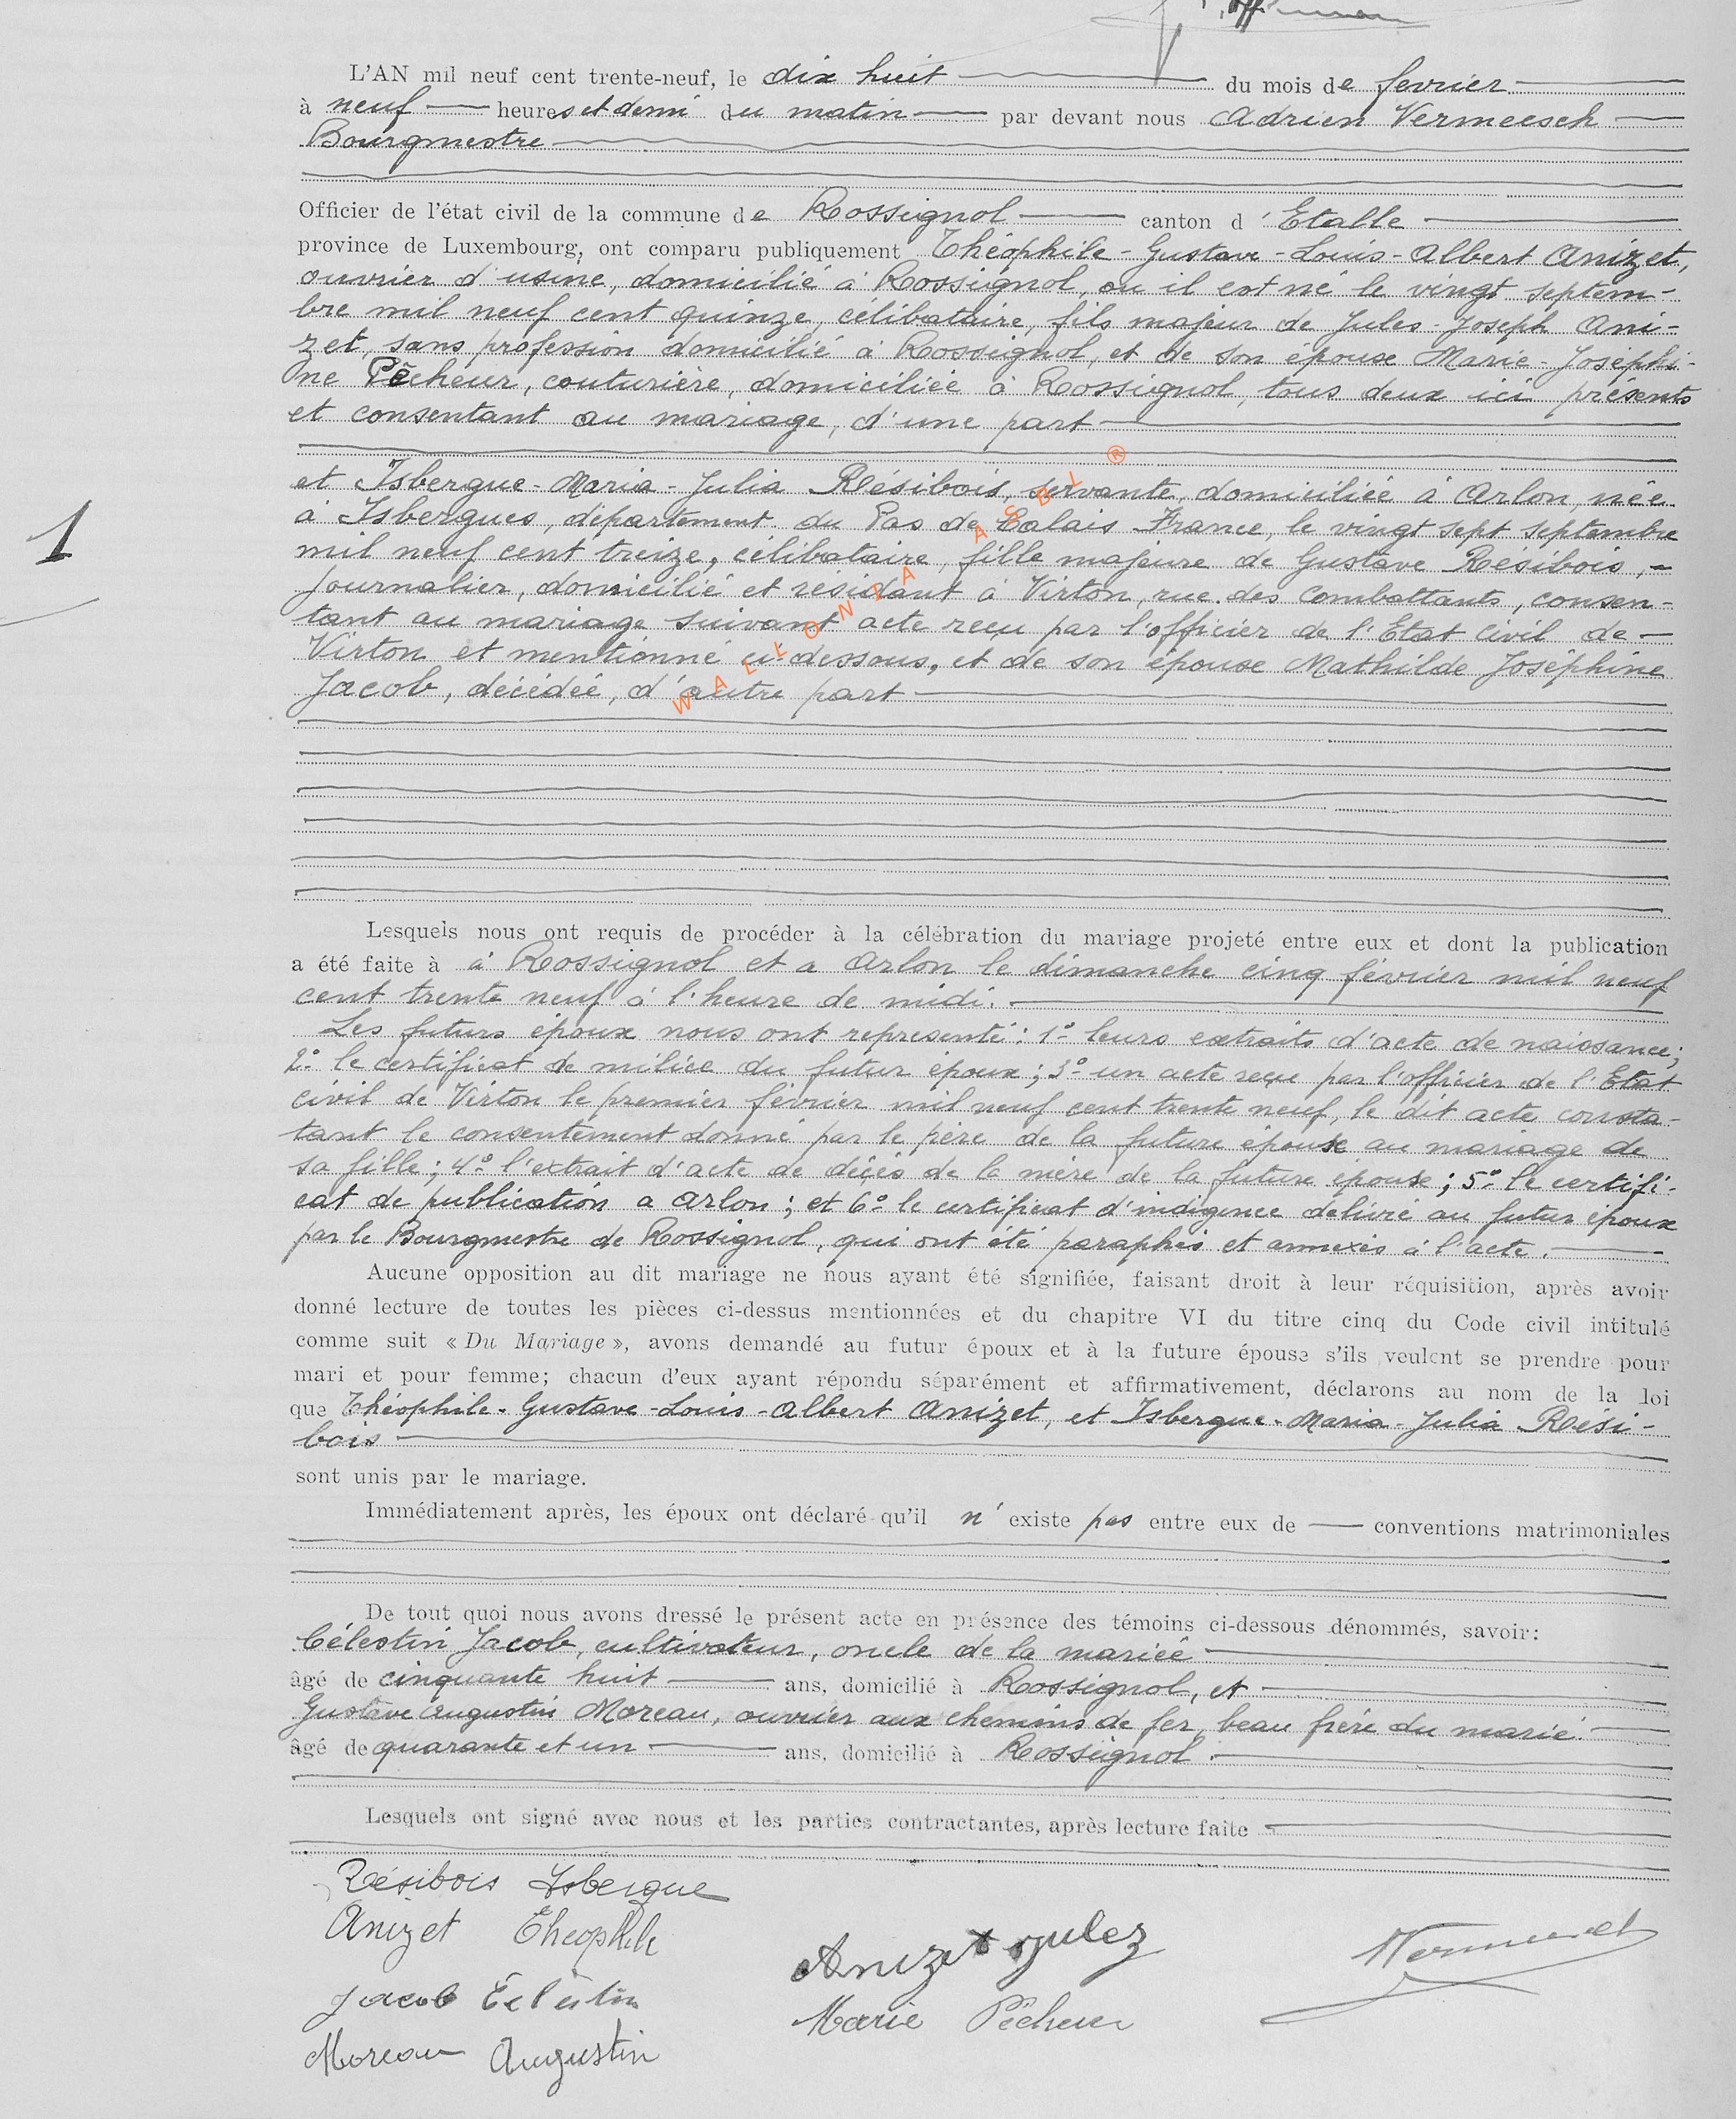 L'AN mil neuf cent trente-neuf, le dix huit du mois de fevrier
à neuf heures et demi du matin par devant nous Adrien Vermeesch
Bourgmestre
Officier de l'état civil de la commune de Rossignol canton d'Etalle
province de Luxembourg, ont comparu publiquement Théophile-Gustave-Louis-Albert Anizet,
ouvrier d'usine, domicilié à Rossignol, ou il est né le vingt septem-
bre mil neuf cent quinze, célibataire, fils majeur de Jules-Joseph Ani-
zet, sans profession domicilié à Rossignol, et de son épouse Marie-Joséphi-
ne Pêcheur, couturière, domiciliée à Rossignol, tous deux ici présents
et consentant au mariage, d'une part
et Isbergue-Maria-Julia Résibois, servante, domiciliée à Arlon, née
à Isbergues, département du Pas de Calais France, le vingt sept septembre
1
mil neuf cent treize, célibataire, fille majeure de Gustave Résibois,
journalier, domicilié et résidant à Virton, rue des Combattants, consen-
tant au mariage suivant acte reçu par l'officier de l'Etat civil de
Virton et mentionné ci-dessous, et de son épouse Mathilde Joséphine
Jacob, décédée, d'autre part
WALLONIA ASBL ®
Lesquels nous ont requis de procéder à la célébration du mariage projeté entre eux et dont la publication
a été faite à à Rossignol et a Arlon le dimanche cinq février mil neuf
cent trente neuf à l'heure de midi.
Les futurs époux nous ont representé: 1º leurs extraits d'acte de naissance;
2º le certificat de milice du futur époux; 3º un acte reçu par l'officier de l'Etat
civil de Virton le premier février mil neuf cent trente neuf, le dit acte consta-
tant le consentement donné par le père de la future épouse au mariage de
sa fille; 4º l'extrait d'acte de décès de la mère de la future épouse; 5º le certifi-
cat de publication a Arlon; et 6º le certificat d'indigence délivré au futur époux
par le Bourgmestre de Rossignol, qui ont été paraphés et annexés à l'acte.
Aucune opposition au dit mariage ne nous ayant été signifiée, faisant droit à leur réquisition, après avoir
donné lecture de toutes les pièces ci-dessus mentionnées et du chapitre VI du titre cinq du Code civil intitulé
comme suit « Du Mariage », avons demandé au futur époux et à la future épouse s'ils veulent se prendre pour
mari et pour femme; chacun d'eux ayant répondu séparément et affirmativement, déclarons au nom de la loi
que Théophile-Gustave-Louis-Albert Anizet, et Isbergue-Maria-Julia Rési-
bois
sont unis par le mariage.
Immédiatement après, les époux ont déclaré qu'il n'existe pas entre eux de conventions matrimoniales
De tout quoi nous avons dressé le présent acte en présence des témoins ci-dessous dénommés, savoir:
Célestin Jacob, cultivateur, oncle de la mariée
âgé de cinquante huit ans, domicilié à Rossignol, et
Gustave Augustin Moreau, ouvrier aux chemins de fer, beau frère du marié.
âgé de quarante et un ans, domicilié à Rossignol.
Lesquels ont signé avec nous et les parties contractantes, après lecture faite
Résibois Isbergue
Anizet Théophile
Anizet Julez
Jacob Célestin
Marie Pêcheur
Moreau Augustin